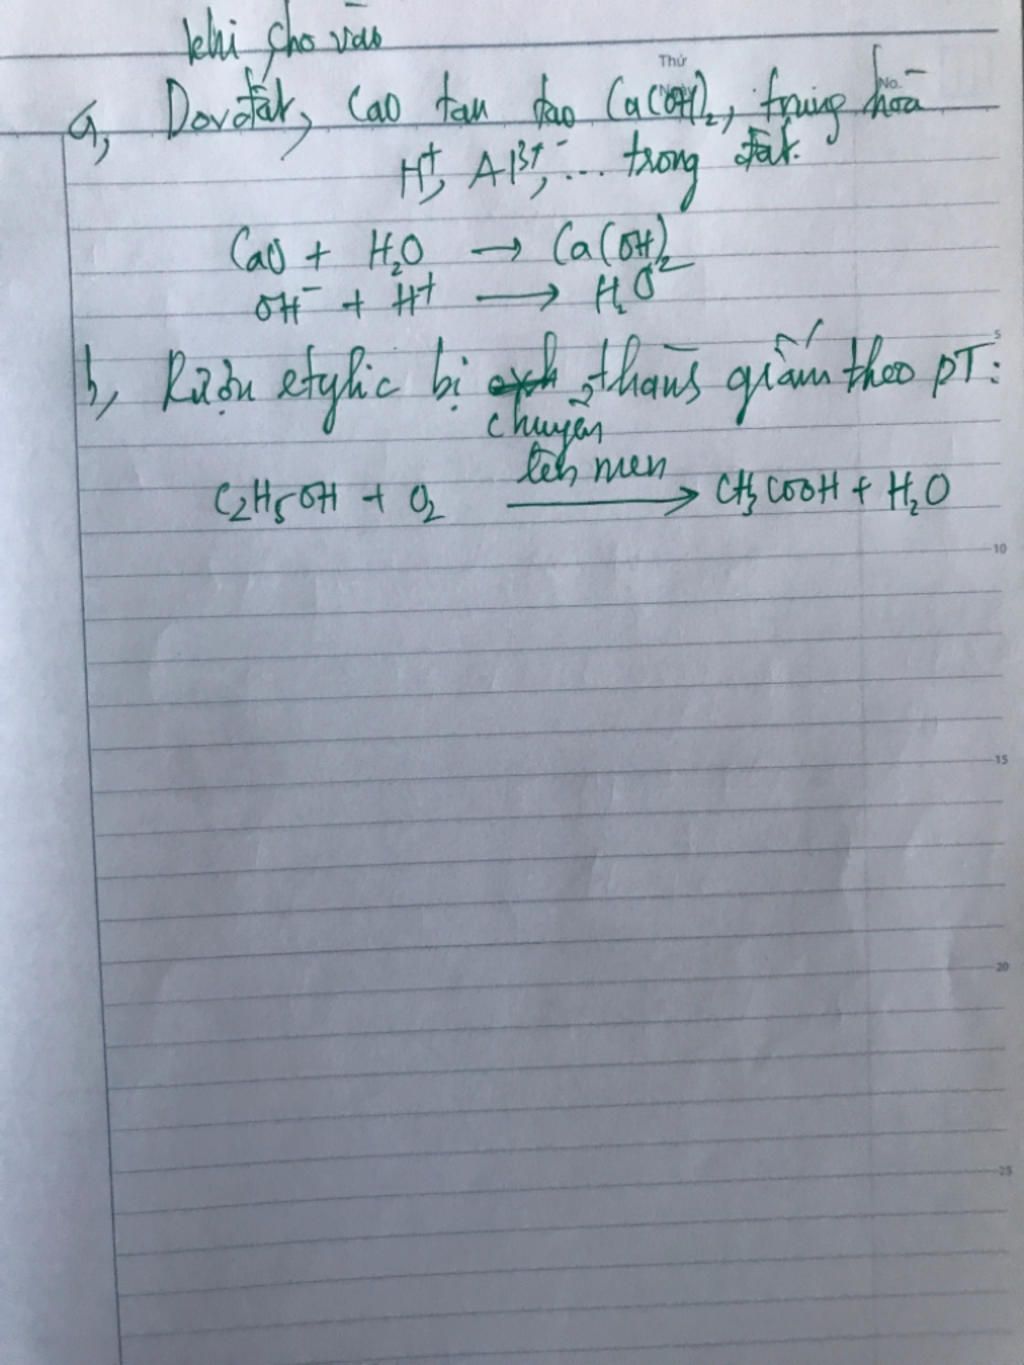 khi cho vào
Thứ
No.
a, Do đất, CaO tan tạo Ca(OH)₂, trung hoà
H⁺, Al³⁺, ... trong đất.
CaO + H₂O → Ca(OH)₂
OH⁻ + H⁺ → H₂O
b, Rượu etylic bị chuyển thành giấm theo PT:
lên men
C₂H₅OH + O₂ → CH₃COOH + H₂O
5
10
15
20
25